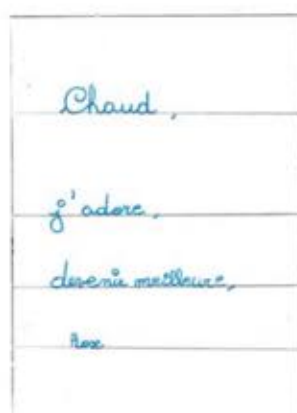 Chaud,
j'adore,
devenir meilleure,